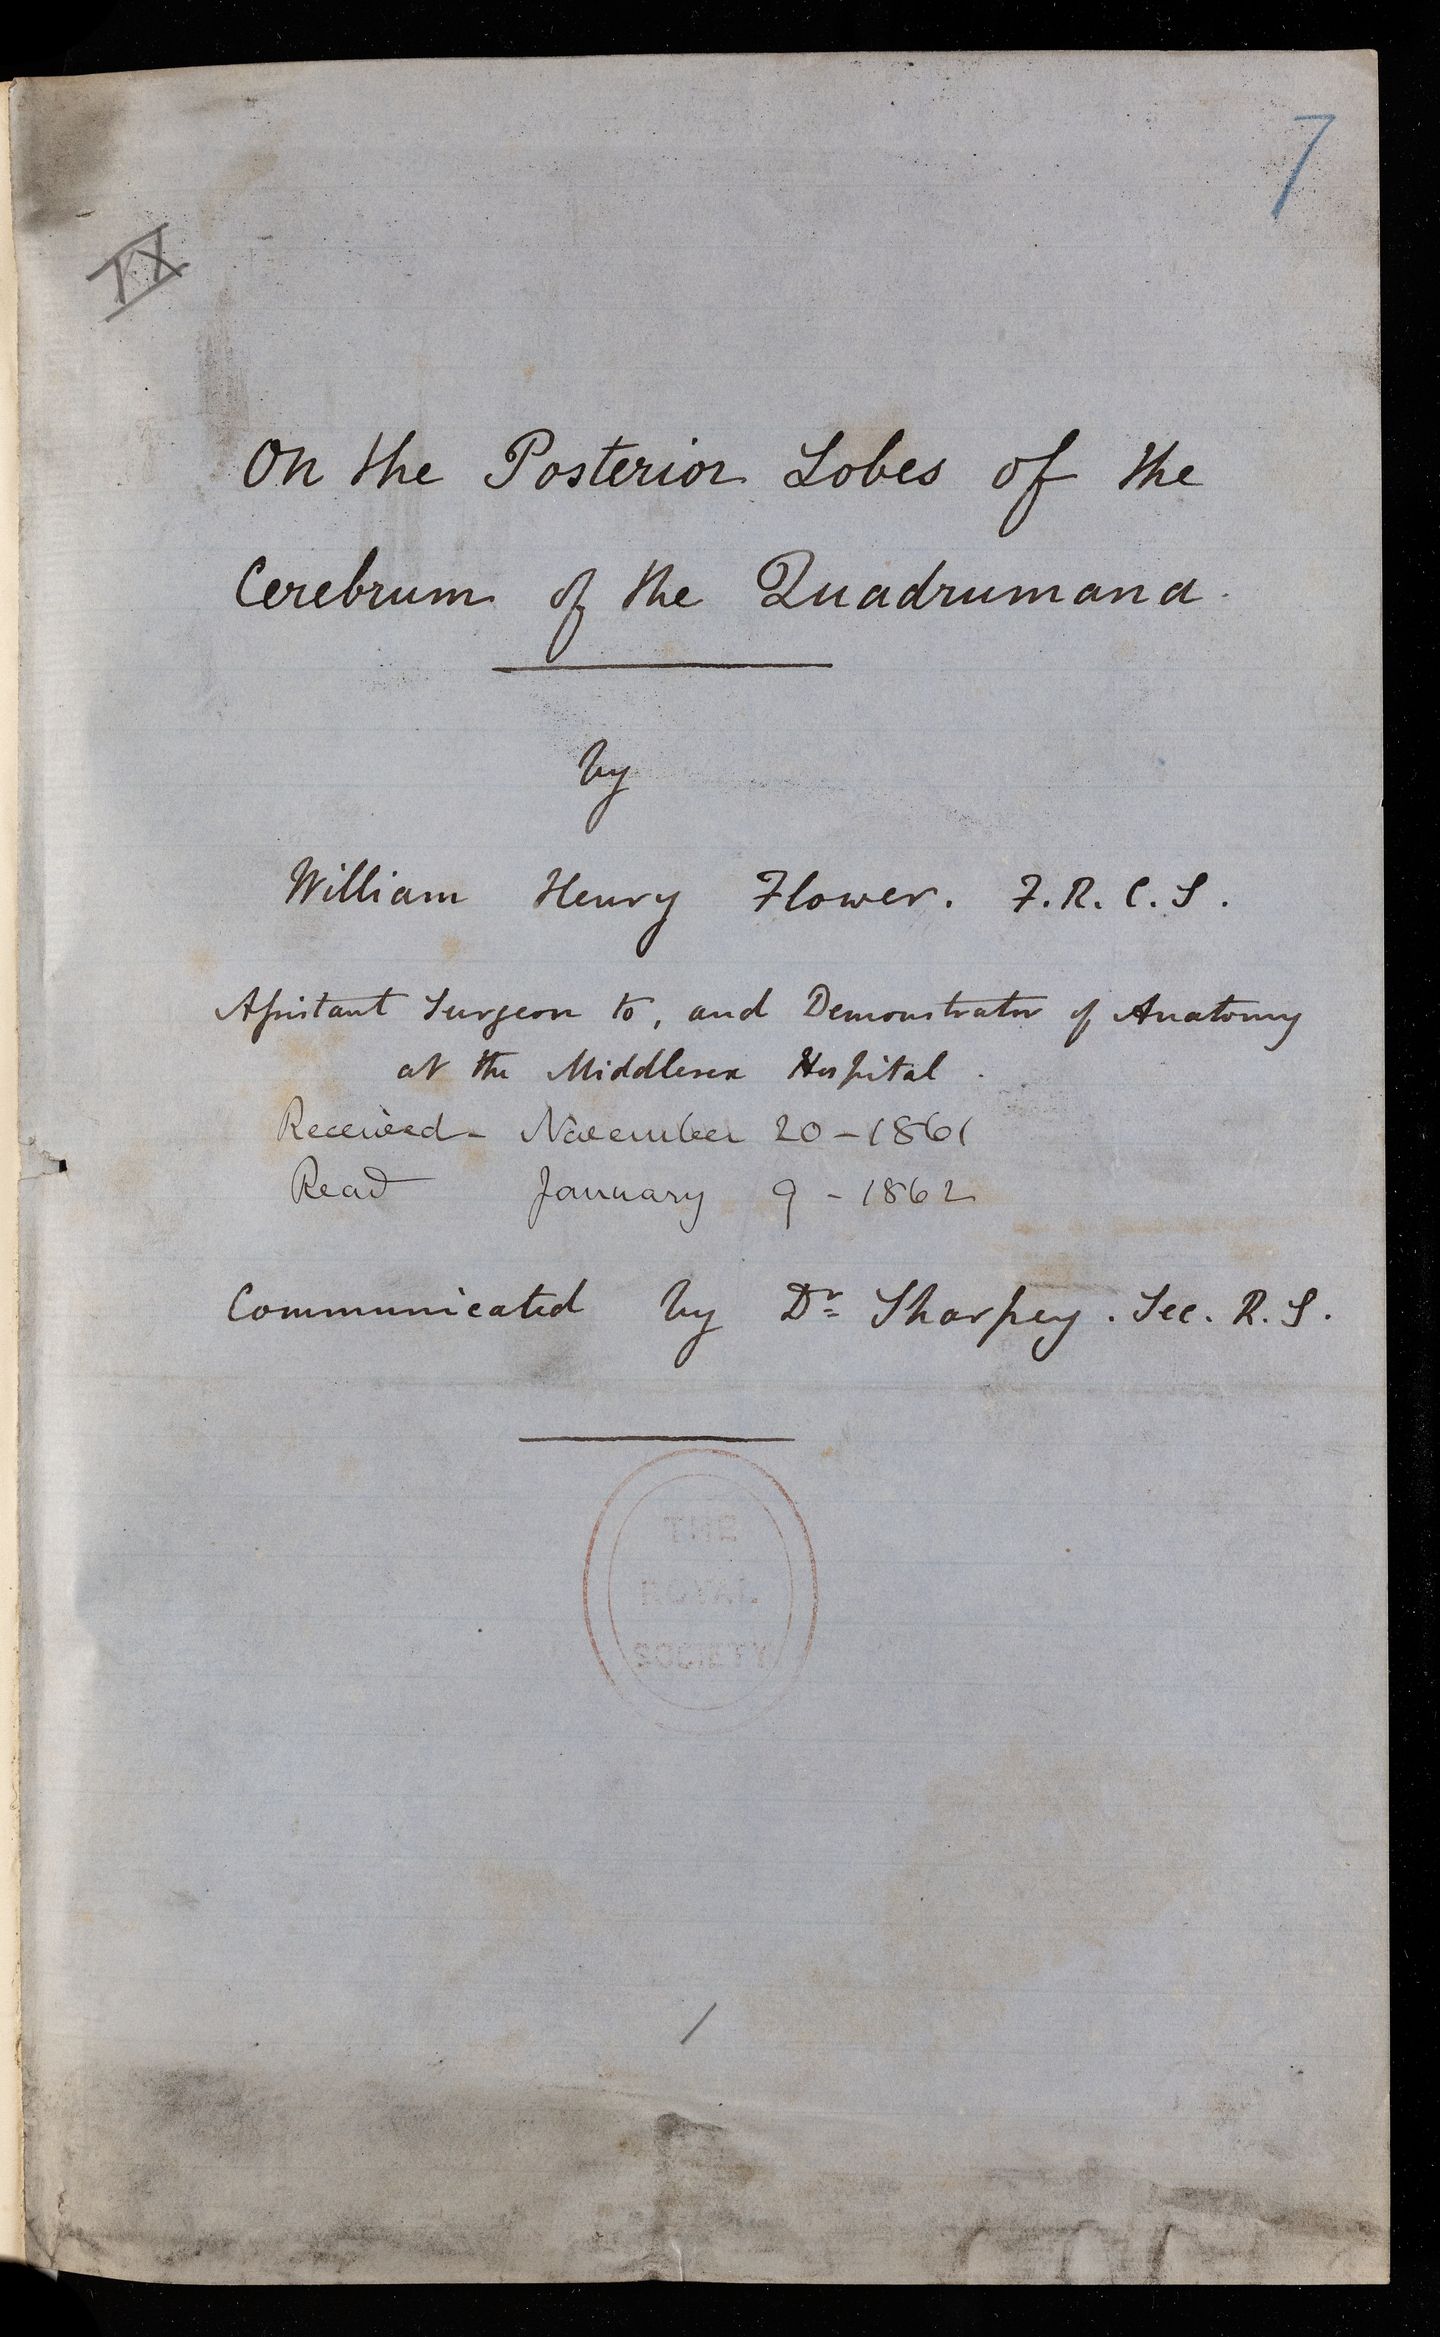 7
IX
On the Posterior Lobes of the
Cerebrum of the Quadrumana.
by
William Henry Flower. F.R.C.S.
Aſsistant Surgeon to, and Demonstrator of Anatomy
at the Middlesex Hospital.
Received - November 20 - 1861
Read January 9 - 1862
Communicated by Dr Sharpey. Sec. R.S.
THE
ROYAL
SOCIETY
/